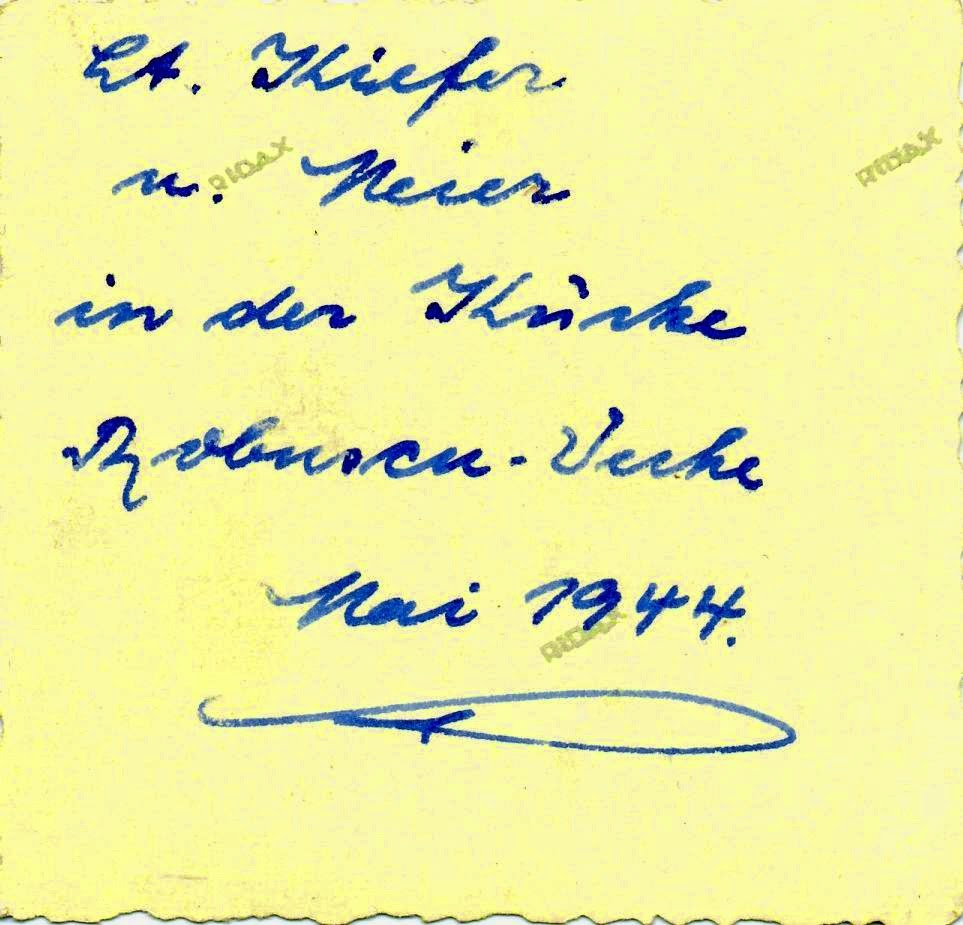 Lt. Kiefer
u. Meier
in der Küche
Mai 1944.
RIDAX
RIDAX
RIDAX